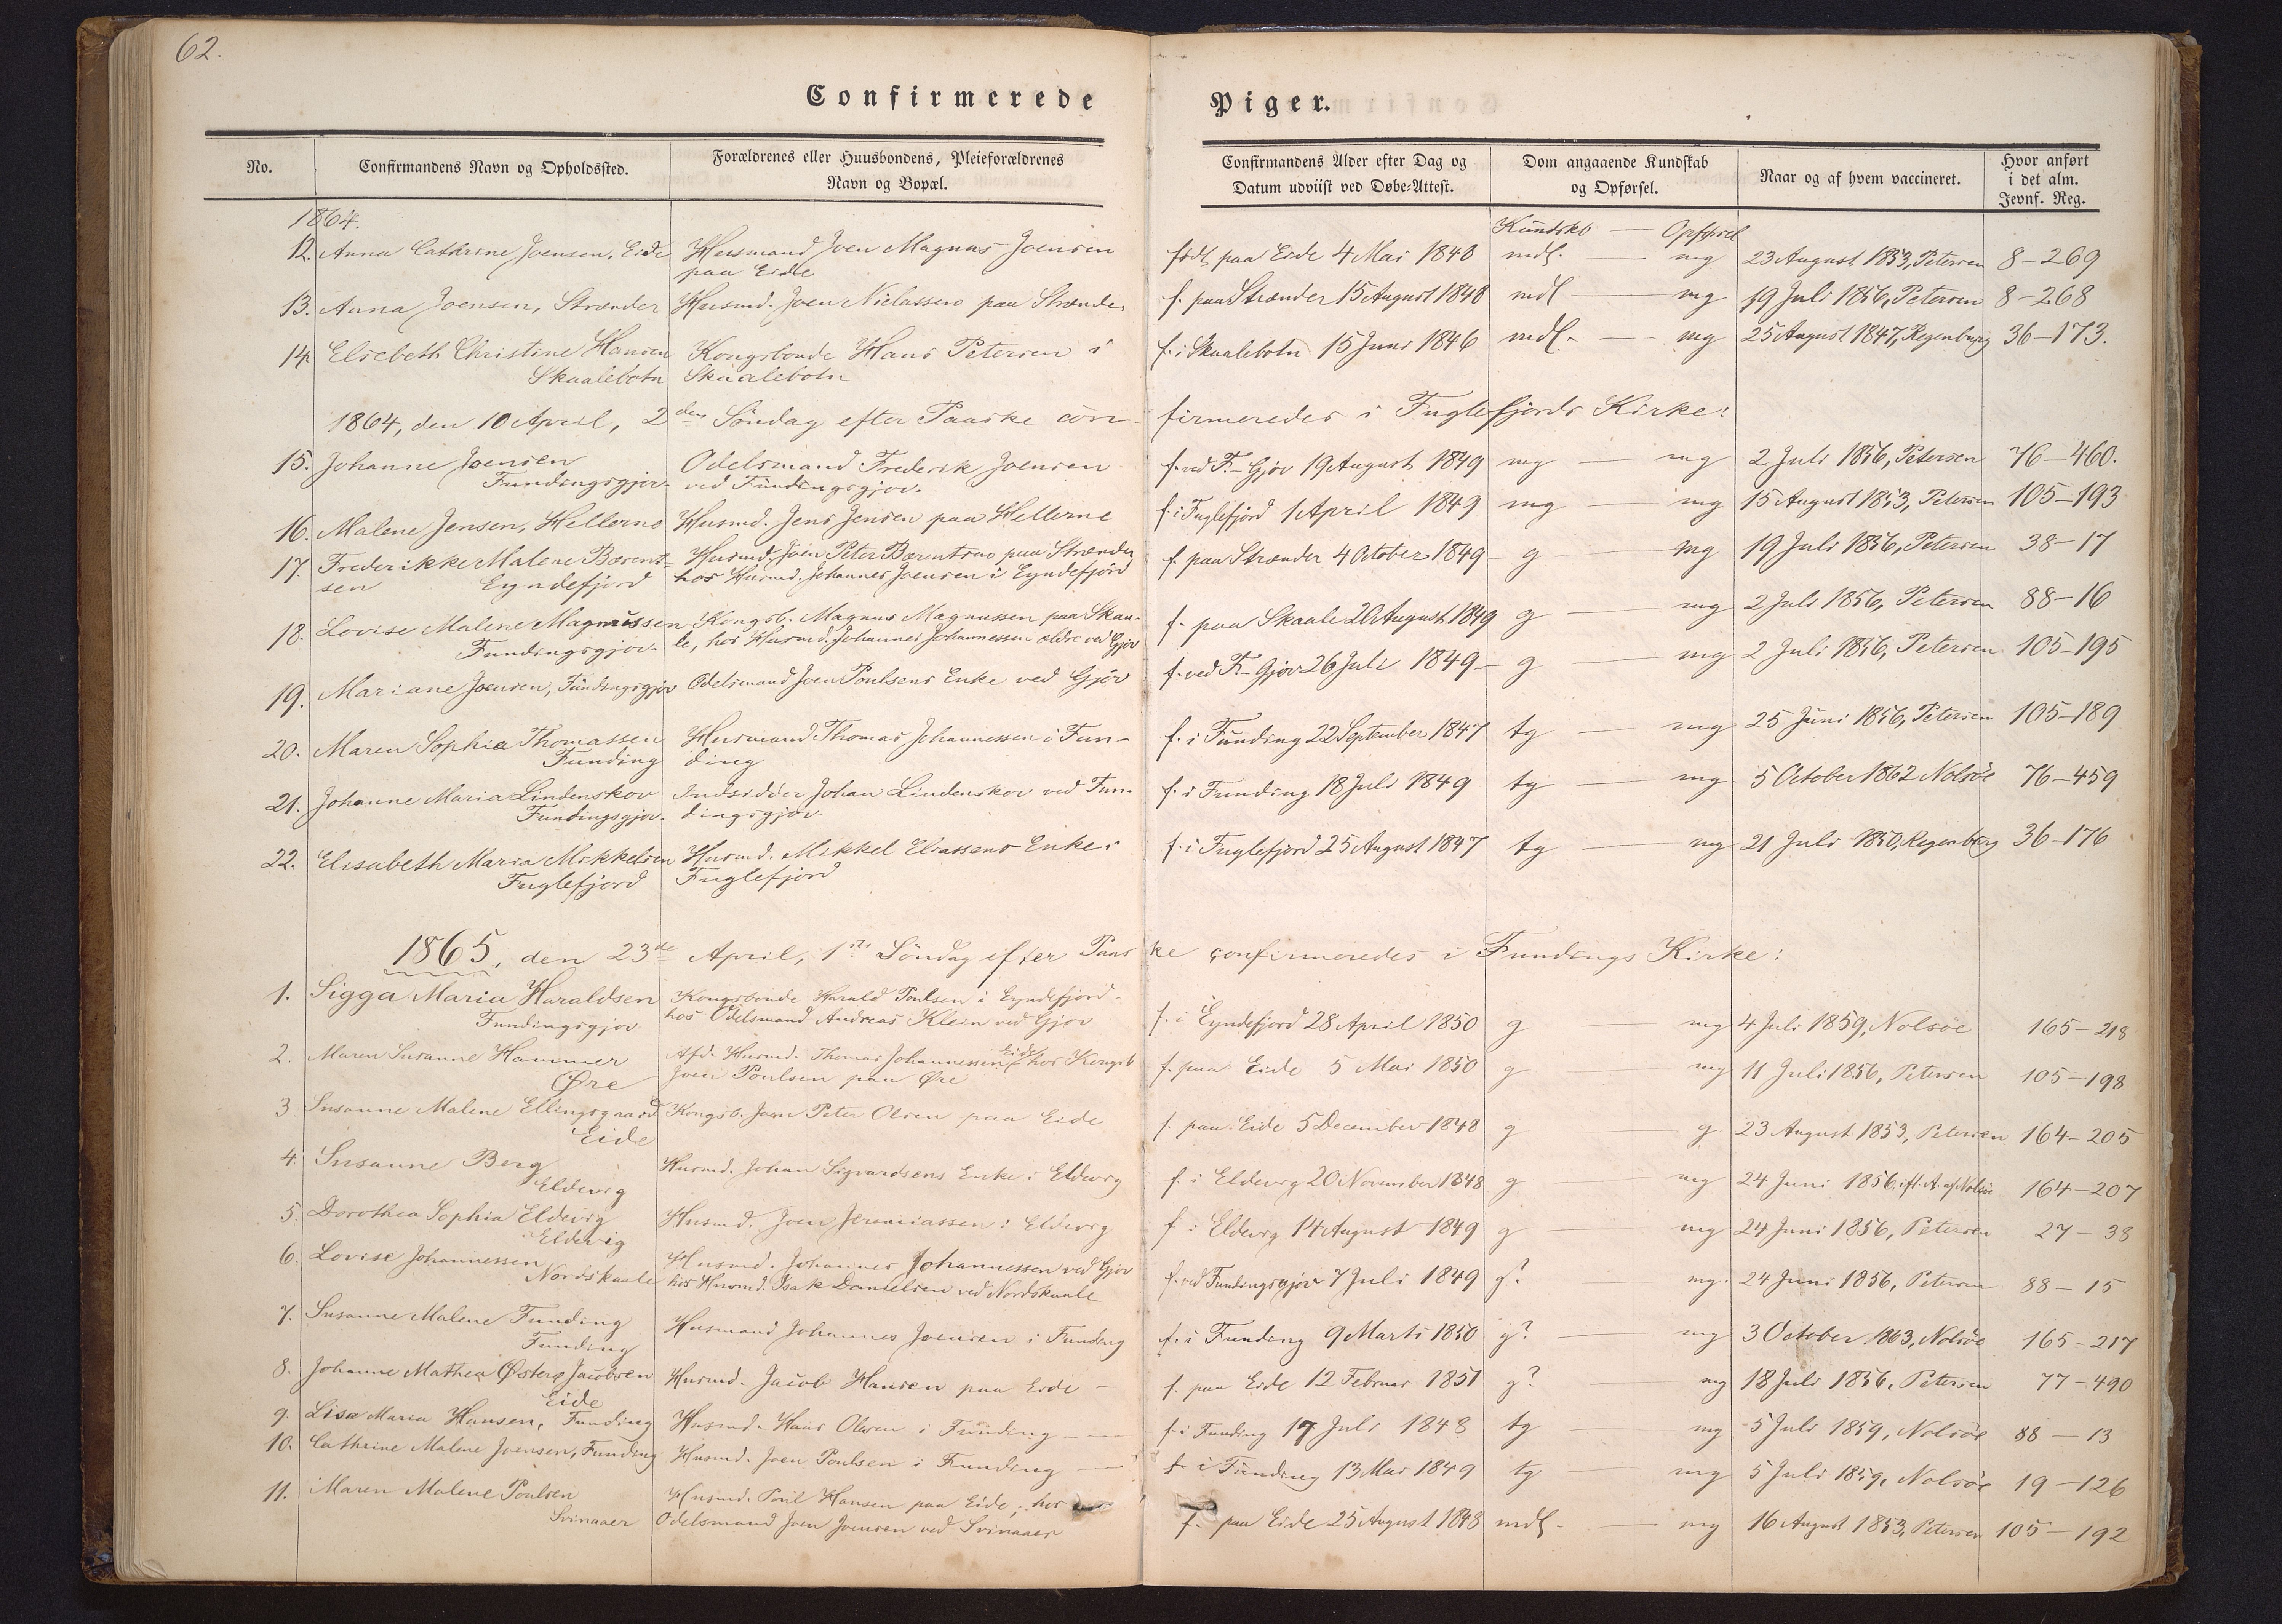 62.
Confirmerede Piger.
No.
Confirmandens Navn og Opholdssted.
Forældrenes eller Huusbondens, Pleieforældrenes
Navn og Bopæl.
Confirmandens Alder efter Dag og
Datum udviist ved Døbe-Attest.
Dom angaaende Kundskab
og Opførsel.
Naar og af hvem vaccineret.
Hvor anført
i det alm.
Jevnf. Reg.
1864.
Kundskb — Opførsel
12. Anna Cathrine Joensen, Eide Husmand Joen Magnus Joensen født paa Eide 4 Mai 1848 mdl. — mg 23 August 1853, Petersen 8-269
paa Eide
13. Anna Joensen, Strænder Husmd. Joen Niclassens paa Strænder f. paa Strænder 15 August 1848 mdl — mg 19 Juli 1856, Petersen 8-268
14. Elsebeth Christine Hansen Kongsbonde Hans Petersen i f. i Skaalebotn 15 Juni 1846 mdl. — mg 25 August 1847, Regenburg 36-173.
Skaalebotn Skaalebotn
1864, den 10 April, 2den Søndag efter Paaske confirmeredes i Fuglefjords Kirke:
15. Johanne Joensen Odelsmand Frederik Joensen f. ved F.-Gjov 19 August 1849 mg — mg 2 Juli 1856, Petersen 76-460.
Fundingsgjov. ved Fundingsgjov.
16. Malene Jensen, Hellerne Husmd. Jens Jensen paa Hellerne f. i Fuglefjord 1 April 1849 mg — mg 15 August 1853, Petersen 105-193
17. Frederikke Malene Bærent- Husmd. Joen Peter Bærentsens paa Strænder f. paa Strænder 4 October 1849 g — mg 19 Juli 1856, Petersen 38-17
sen Eyndefjord hos Husmd. Johannes Joensen i Eyndefjord
18. Lovise Malene Magnussen Kongsb. Magnus Magnussen paa Skaa- f. paa Skaale 20 August 1849 g — mg 2 Juli 1856, Petersen 88-16
Fundingsgjov. le, hos Husmd. Johannes Johannessen ældre ved Gjov
19. Mariane Joensen, Fundingsgjov Odelsmand Joen Poulsens Enke ved Gjov f. ved F.-Gjov 26 Juli 1849 — g — mg 2 Juli 1856, Petersen 105-195
20. Maren Sophia Thomassen Husmand Thomas Johannessen i Fun- f. i Funding 22 September 1847 tg — mg 25 Juni 1856, Petersen 105-189
Funding ding
21. Johanne Maria Lindenskov Indsidder Johan Lindenskov ved Fun- f. i Funding 18 Juli 1849 tg — mg 5 October 1862 Nolsöe 76-459
Fundingsgjov. dingsgjov.
22. Elisabeth Maria Mikkelsen Husmd. Mikkel Eliassens Enke i f. i Fuglefjord 25 August 1847 tg — mg 21 Juli 1850, Regenburg 36-176
Fuglefjord Fuglefjord
1865, den 23de April, 1ste Søndag efter Paaske confirmeredes i Fundings Kirke:
1. Sigga Maria Haraldsen Kongsbonde Harald Poulsen i Eyndefjord f. i Eyndefjord 28 April 1850 g mg 4 Juli 1859, Nolsöe 165-218
Fundingsgjov hos Odelsmand Andreas Klein ved Gjov
2. Maren Susanne Hammer Afd. Husmd. Thomas Johannessen Eide hos Kongsb f. paa Eide 5 Mai 1850 g mg 11 Juli 1856, Petersen 105-198
Øre Joen Poulsen paa Øre
3 Susanne Malene Ellingsgaard Kongsb. Joen Peter Olsen paa Eide f. paa Eide 5 December 1848 g g 23 August 1853, Petersen 164-205
Eide
4. Susanne Berg Husmd. Johan Sigvardsens Enke i Eldevig f. i Eldevig 20 November 1848 g mg 24 Juni 1856, ift. A. af Nolsöe 164-207
Eldevig
5. Dorothea Sophia Eldevig Husmd. Joen Jeremiassen i Eldevig f. i Eldevig 14 August 1849 g mg 24 Juni 1856, Petersen 27-38
Eldevig
6. Lovise Johannessen Husmd. Johannes Johannessen ved Gjov f. ved Fundingsgjov 7 Juli 1849 g? mg. 24 Juni 1856, Petersen 88-15
Nordskaale hos Husmd. Isak Danielsen ved Nordskaale
7. Susanne Malene Funding Husmand Johannes Joensen i Funding f. i Funding 9 Marts 1850 g? mg 3 October 1863, Nolsöe 165-217
Funding
8. Johanne Mathea Østerø Jacobsen Husmd. Jacob Hansen paa Eide — f. paa Eide 12 Februar 1851 g? mg 18 Juli 1856, Petersen 77-490
Eide
9. Lisa Maria Hansen, Funding Husmd. Hans Olesen i Funding — f. i Funding 17 Juli 1848 tg mg 5 Juli 1859, Nolsöe 88-13
10. Cathrine Malene Joensen, Funding Husmd. Joen Poulsen i Funding — f. i Funding 13 Mai 1849 tg mg 5 Juli 1859, Nolsöe 19-126
11. Maren Malene Poulsen Husmd. Poul Hansen paa Eide, hos f. paa Eide 25 August 1848 mdl. — mg 16 August 1853, Petersen 105-192
Svinaaer Odelsmand Joen Joensen ved Svinaaer